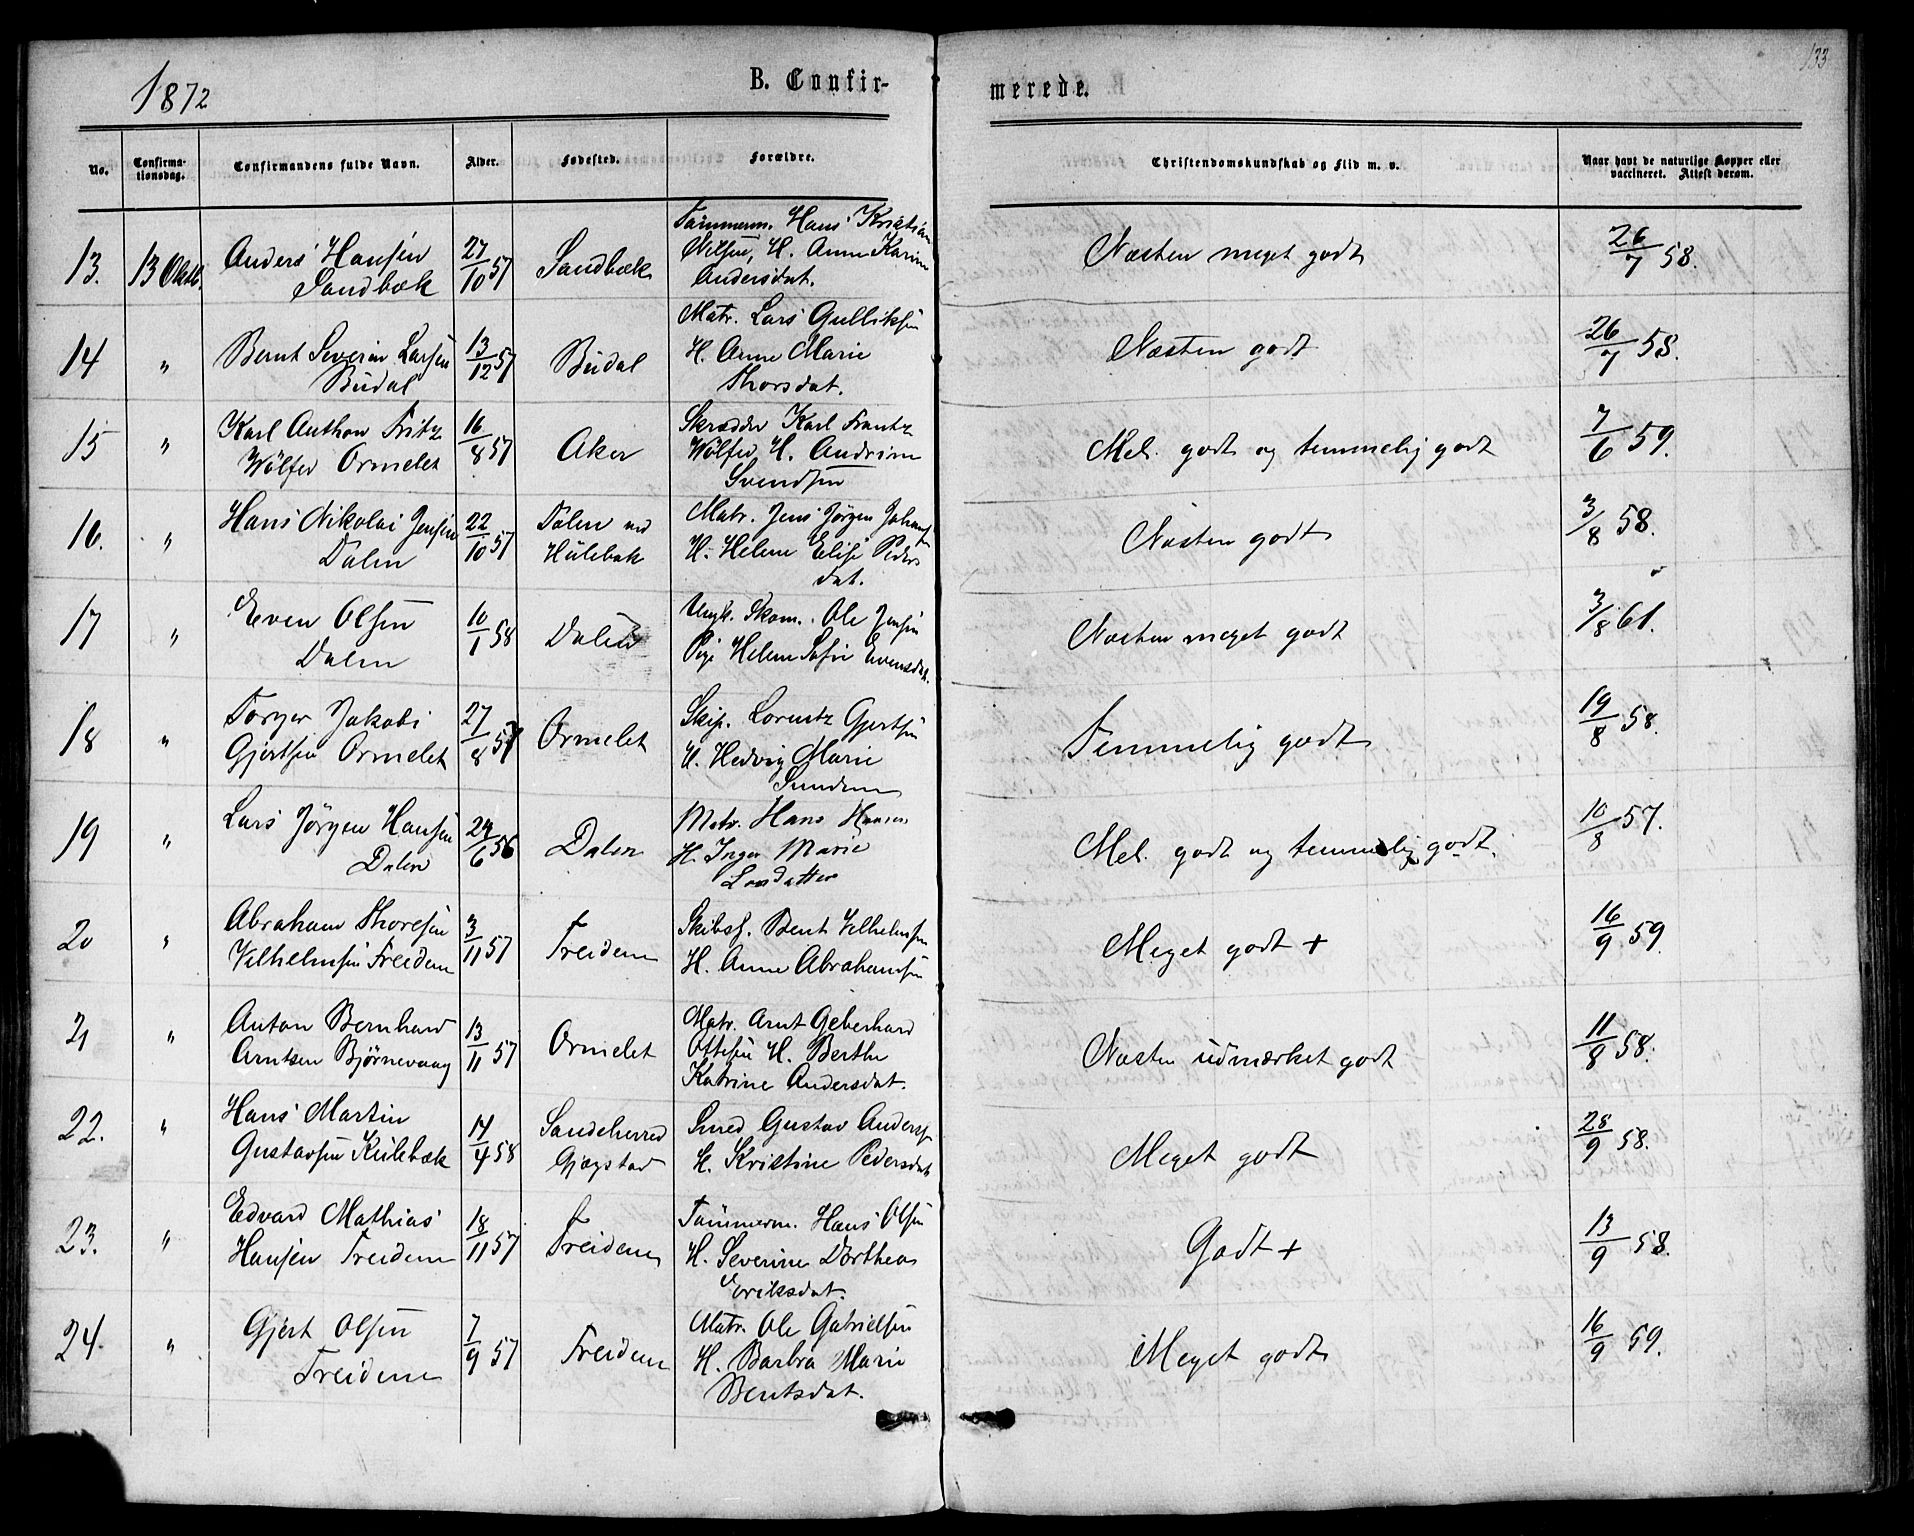 133
1872
B. Confirmerede.
No.
Confirmationsdag.
Confirmandens fulde Navn.
Alder.
Fødested.
Forældre.
Christendomskundskab og Flid m. v.
Naar havt de naturlige Kopper eller vaccineret. Attest derom.
13. 13 Oktb. Anders Hansen Sandbæk 27/10 57 Sandbæk Tømmerm. Hans Kristian Nilsen, H. Anne Karine Andersdat. Næsten meget godt 26/7 58.
14 " Bernt Severin Larsen Budal 13/12 57 Budal Matr. Lars Gulliksen H. Anne Marie Thorsdat. Næsten godt 26/7 58.
15 " Karl Anthon Fritz Wölfer Ormelet 16/8 57 Aker Skrædder Karl Frantz Wölfer, H. Andrine Svendsen Mel. godt og temmelig godt 7/6 59.
16. " Hans Nikolai Jensen Dalen 22/10 57 Dalen ved Hulebak Matr. Jens Jørgen Johansen H. Helene Elise Pedersdat. Næsten godt 3/8 58.
17 " Even Olsen Dalen 10/1 58 Dalen Ungk. Skom. Ole Jensen Pige Helene Sofie Evensdat. Næsten meget godt 3/8 61.
18 " Torger Jakobi Gjertsen Ormelet 27/8 57 Ormelet Skip. Lorentz Gjertsen H. Hedvig Marie Sundene Temmelig godt 19/8 58.
19 " Lars Jørgen Hansen Dalen 24/6 56 Dalen Matr. Hans Hansen H. Inger Marie Larsdatter Mel. godt og temmelig godt. 10/8 57.
20 " Abraham Thoresen Vilhelmsen Freidene 3/11 57 Freidene Skibsf. Bent Vilhelmsen H. Anne Abrahamsen Meget godt + 16/9 59
21 " Anton Bernhard Arntsen Bjørnevaag 13/11 57 Ormelet Matr. Arnt Geberhard Ottesen H. Berthe Katrine Andersdat. Næsten udmærket godt 11/8 58.
22. " Hans Martin Gustavsen Kulebæk 14/4 58 Sandeherred Gjøgstad Smed Gustav Anders H. Kristine Pedersdat Meget godt 28/9 58.
23. " Edvard Mathias Hansen Freidene 18/11 57 Freidene Tømmerm. Hans Olsen H. Severine Dorthea Eriksdat. Godt + 13/9 58.
24. " Gjert Olsen Freidene 7/9 57 Freidene Matr. Ole Gabrielsen H. Barbra Marie Bentsdat. Meget godt 16/9 59.